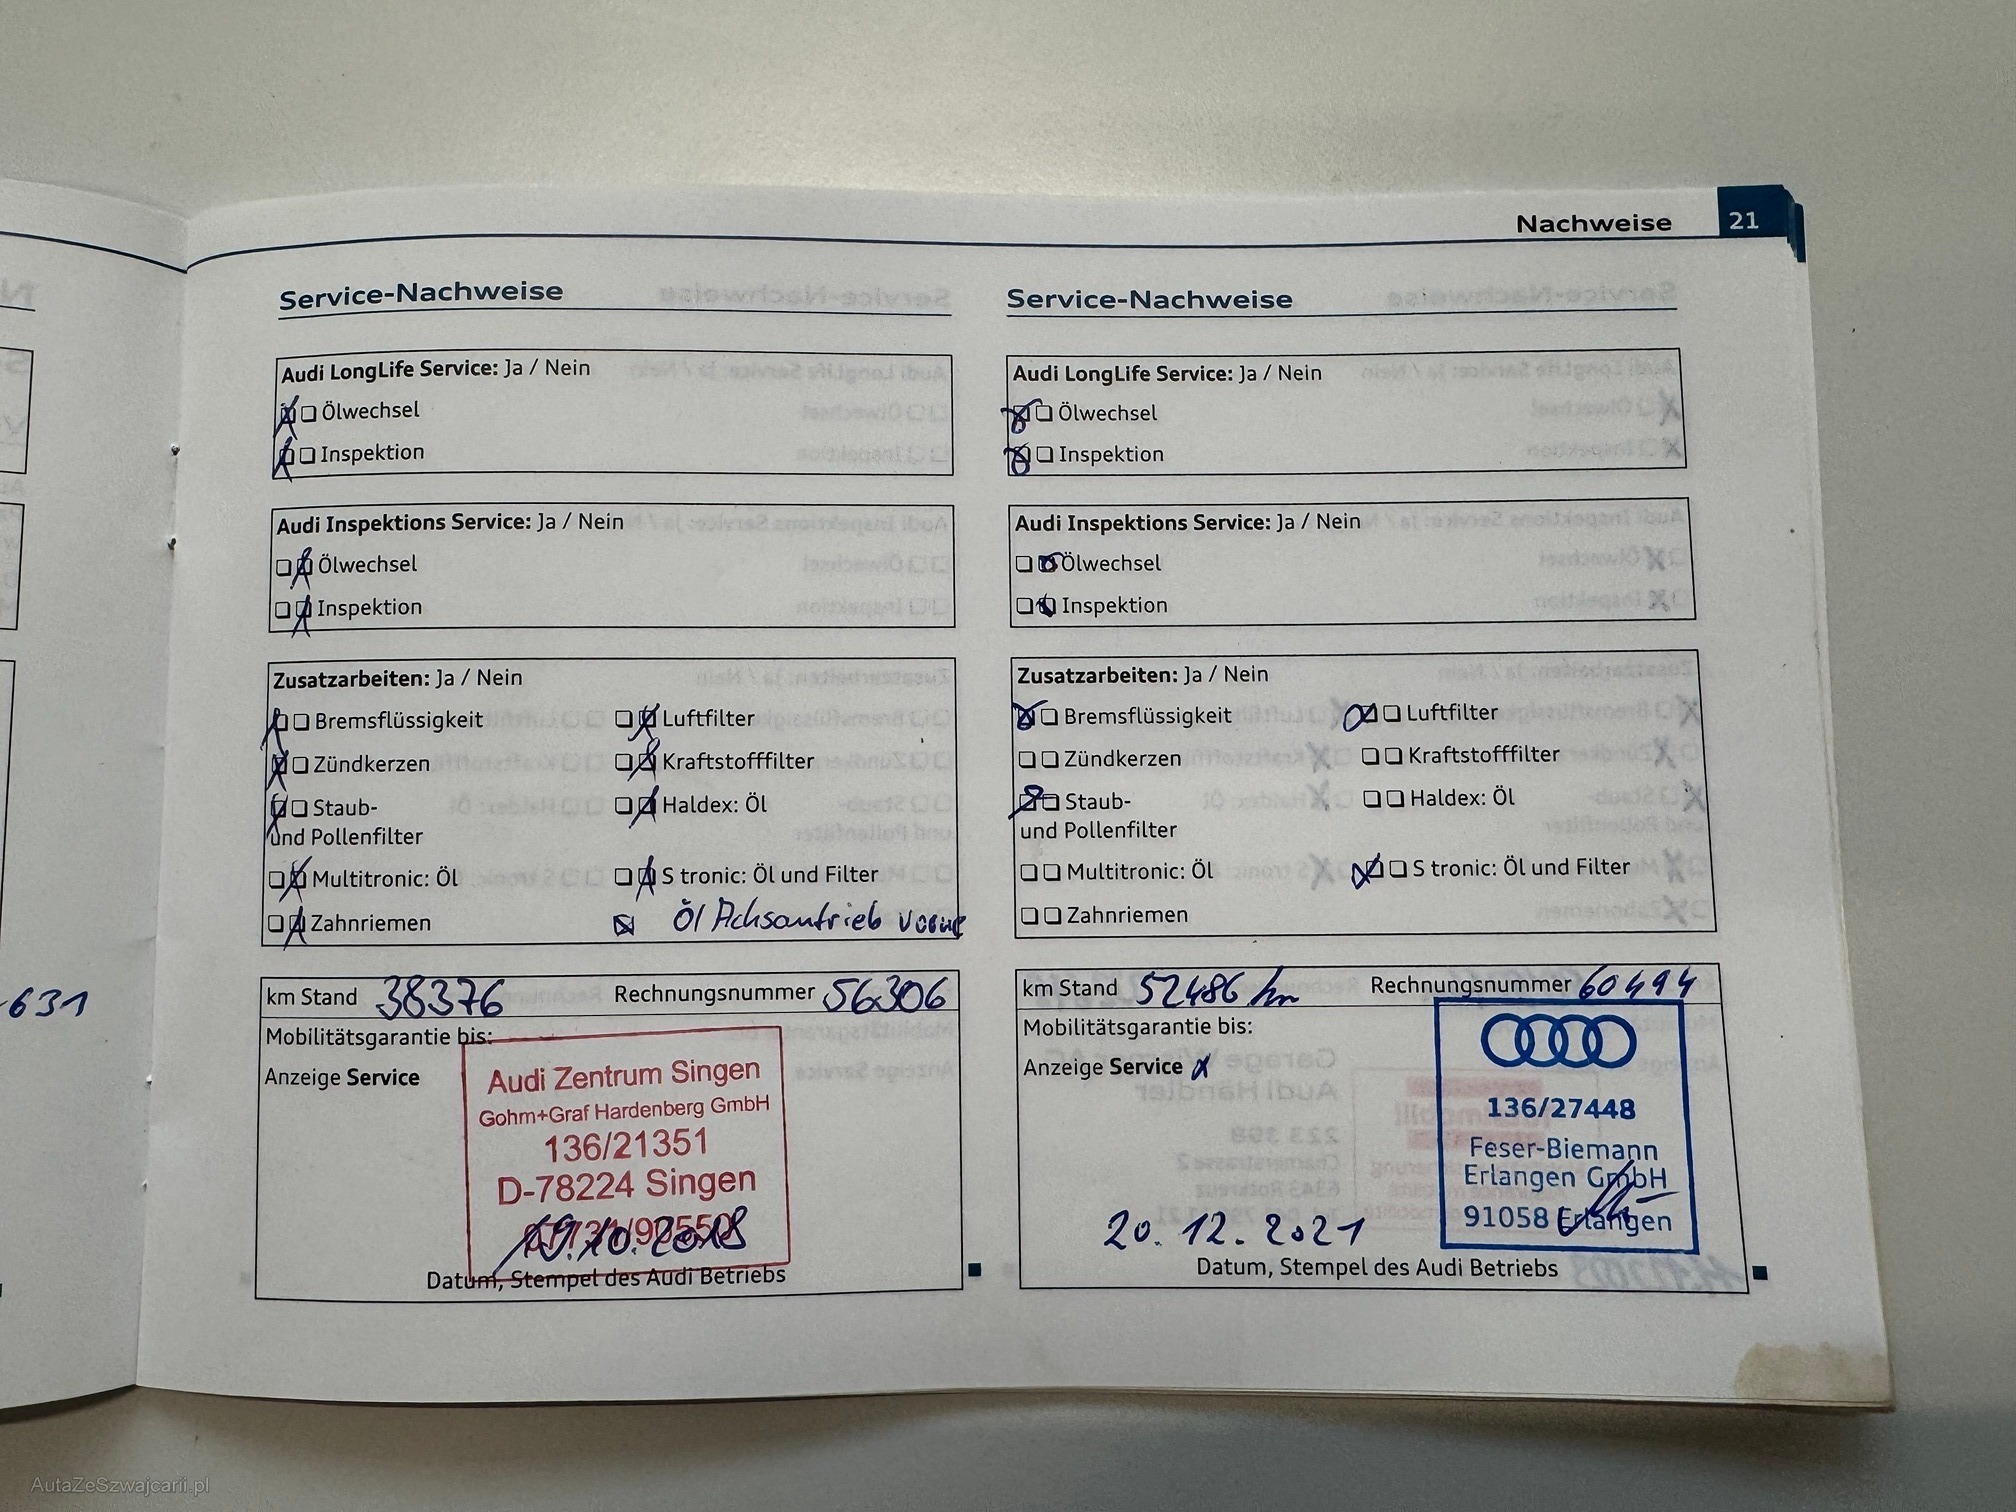 631
Nachweise 21
Service-Nachweise
Audi LongLife Service: Ja / Nein
Ölwechsel
Inspektion
Audi Inspektions Service: Ja / Nein
Ölwechsel
Inspektion
Zusatzarbeiten: Ja / Nein
Bremsflüssigkeit Luftfilter
Zündkerzen Kraftstofffilter
Staub- Haldex: Öl
und Pollenfilter
Multitronic: Öl S tronic: Öl und Filter
Zahnriemen Öl Achsantrieb vorne
km Stand 38376 Rechnungsnummer 56306
Mobilitätsgarantie bis:
Anzeige Service
Audi Zentrum Singen
Gohm+Graf Hardenberg GmbH
136/21351
D-78224 Singen
19.10.2018
Datum, Stempel des Audi Betriebs
Service-Nachweise
Audi LongLife Service: Ja / Nein
Ölwechsel
Inspektion
Audi Inspektions Service: Ja / Nein
Ölwechsel
Inspektion
Zusatzarbeiten: Ja / Nein
Bremsflüssigkeit Luftfilter
Zündkerzen Kraftstofffilter
Staub- Haldex: Öl
und Pollenfilter
Multitronic: Öl S tronic: Öl und Filter
Zahnriemen
km Stand 52486 km Rechnungsnummer 60494
Mobilitätsgarantie bis:
Anzeige Service x
136/27448
Feser-Biemann
Erlangen GmbH
91058 Erlangen
20.12.2021
Datum, Stempel des Audi Betriebs
AutaZeSzwajcarii.pl